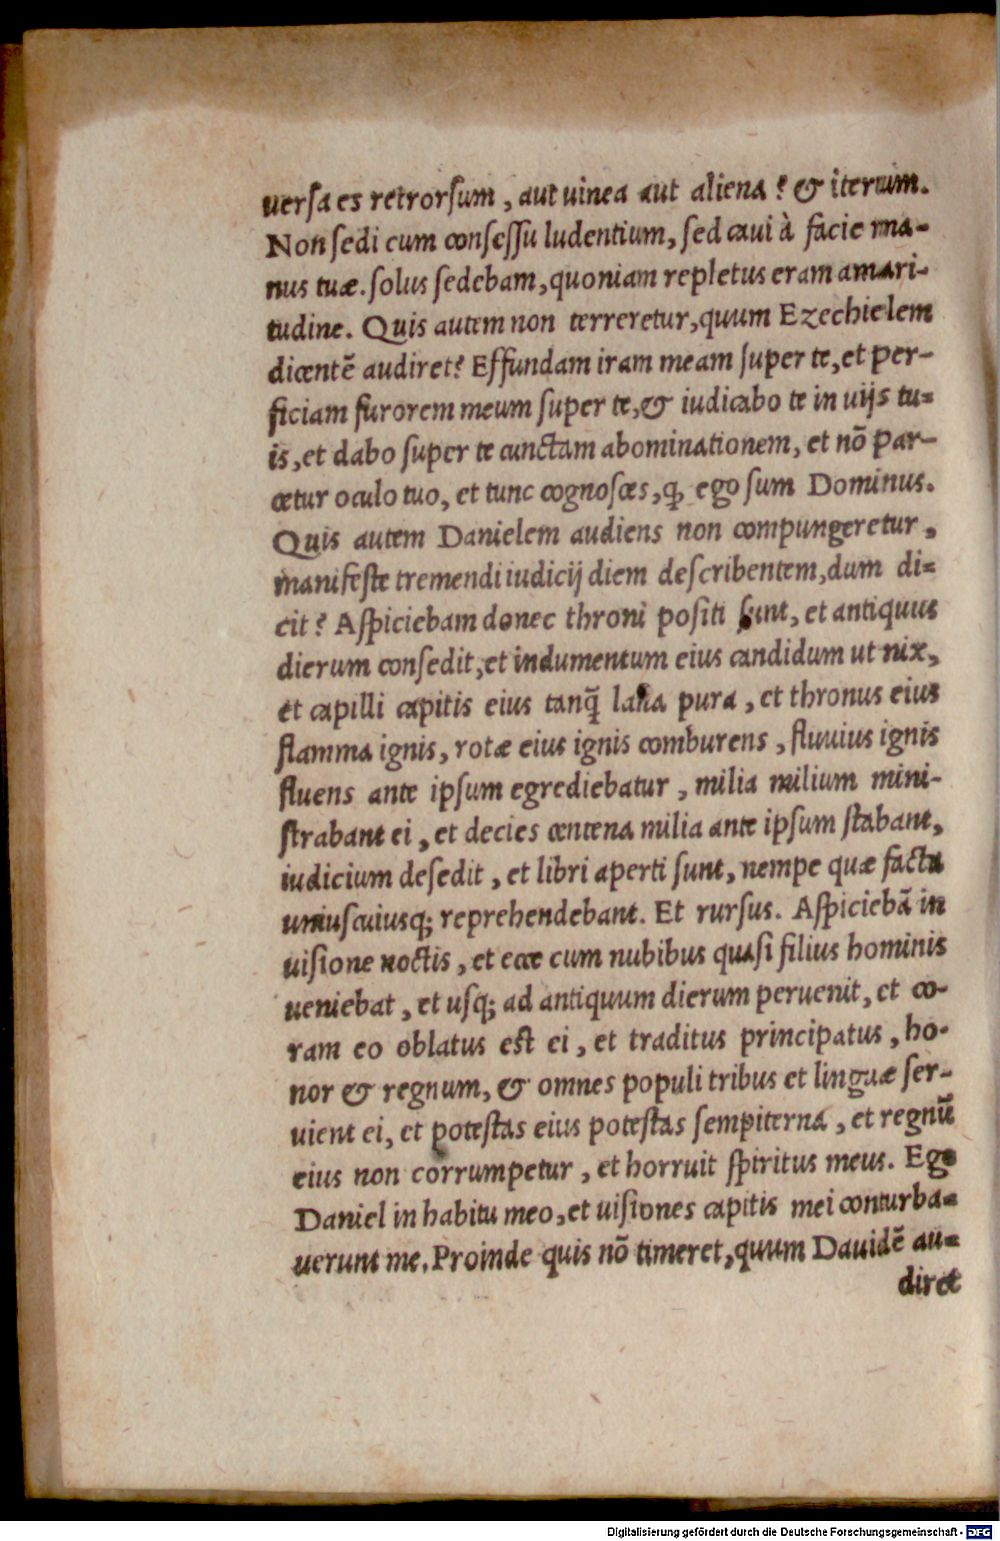 uersa es retrorsum, aut uinea aut aliena? & iterum.
Non sedi cum consessu ludentium, sed caui à facie ma-
nus tuæ. solus sedebam, quoniam repletus eram amari-
tudine. Quis autem non terreretur, quum Ezechielem
dicentẽ audiret? Effundam iram meam super te, et per-
ficiam furorem meum super te, & iudicabo te in uijs tu-
is, et dabo super te cunctam abominationem, et nõ par-
cetur oculo tuo, et tunc cognosces, ꝙ ego sum Dominus.
Quis autem Danielem audiens non compungeretur,
manifeste tremendi iudicij diem describentem, dum di-
cit? Aspiciebam donec throni positi sunt, et antiquus
dierum consedit, et indumentum eius candidum ut nix,
et capilli capitis eius tanq̃ lana pura, et thronus eius
flamma ignis, rotæ eius ignis comburens, fluuius ignis
fluens ante ipsum egrediebatur, milia milium mini-
strabant ei, et decies centena milia ante ipsum stabant,
iudicium desedit, et libri aperti sunt, nempe quæ facta
uniuscuiusq; reprehendebant. Et rursus. Aspiciebã in
uisione noctis, et ecce cum nubibus quasi filius hominis
ueniebat, et usq; ad antiquum dierum peruenit, et co-
ram eo oblatus est ei, et traditus principatus, ho-
nor & regnum, & omnes populi tribus et linguæ ser-
uient ei, et potestas eius potestas sempiterna, et regnũ
eius non corrumpetur, et horruit spiritus meus. Ego
Daniel in habitu meo, et uisiones capitis mei conturba-
uerunt me. Proinde quis nõ timeret, quum Dauidẽ au-
diret
Digitalisierung gefördert durch die Deutsche Forschungsgemeinschaft - DFG